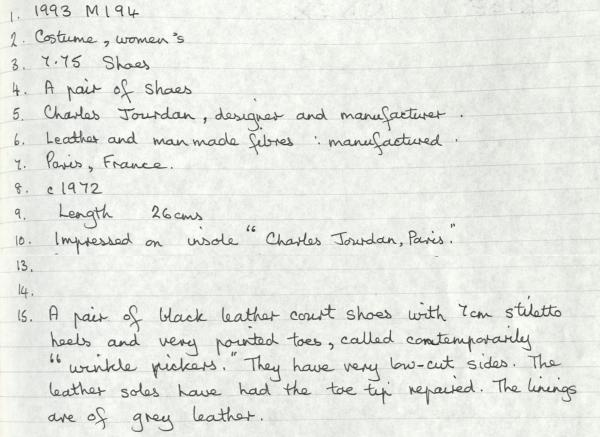 1. 1993 M194
2. Costume, women's
3. 7.75 Shoes
4. A pair of shoes
5. Charles Jourdan, designer and manufacturer.
6. Leather and man made fibres : manufactured.
7. Paris, France.
8. c 1972
9. Length 26cms
10. Impressed on insole "Charles Jourdan, Paris."
13.
14.
15. A pair of black leather court shoes with 7cm stiletto
heels and very pointed toes, called contemporarily
"winkle pickers." They have very low-cut sides. The
leather soles have had the toe tip repaired. The linings
are of grey leather.